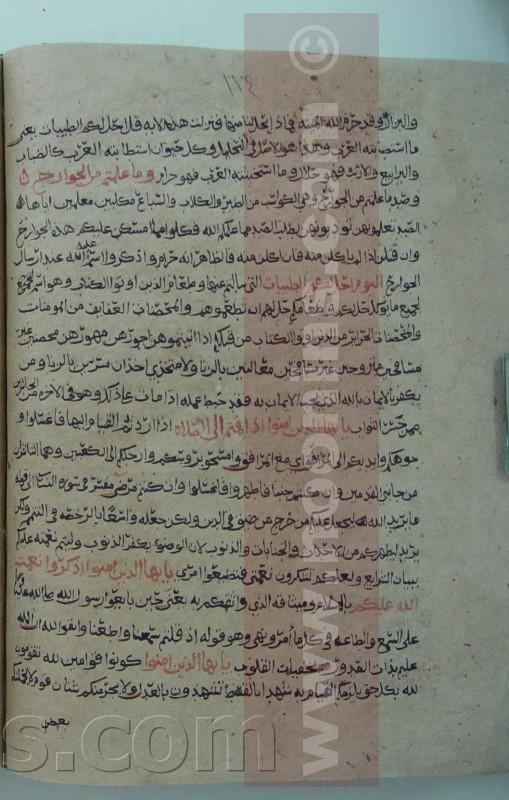 ١١٤
الله الميتة في هذه الآية قل احل لكم الطيبات يعني
ما استطابته العرب وهذا هو الاصل في التحليل وكل حيوان استطابته العرب كالضباب
واليرابيع والارنب فهو حلال وما استخبثته العرب فهو حرام وما علمتم من الجوارح
وصيد ما علمتم من الجوارح وهي الكواسب من الطير والكلاب والسباع مكلبين معلمين اياها
الصيد تعلمونهن تؤدبونهن لطلب الصيد مما علمكم الله فكلوا مما امسكن عليكم هذه الجوارح
وان قتلن اذا لم ياكلن منه فان اكلن منه فالظاهر انه حرام واذكروا اسم الله عليه عند ارسال
الجوارح اليوم احل لكم الطيبات التي سالتم عنها وطعام الذين اوتوا الكتاب وهو اسم
لجميع ما يوكل حل لكم وطعامكم حل لهم ان تطعموهم والمحصنات العفايف من المومنات
والمحصنات الحراير من الذين اوتوا الكتاب من قبلكم اذا اتيتموهن اجورهن مهورهن محصنين غير
مسافحين متزوجين غير معالنين بالزنا ولا متخذي اخدان مسرين بالزنا ومن
يكفر بالايمان بالله الذي يجب الايمان به فقد حبط عمله اذا مات على ذلك وهو في الاخرة من الخاسرين
ممن خسر الثواب يا ايها الذين امنوا اذا قمتم الى الصلاة اذا اردتم القيام اليها فاغسلوا
وجوهكم وايديكم الى المرافق اي مع المرافق وامسحوا برؤسكم وارجلكم الى الكعبين وهما الناتيان
من جانبي القدمين وان كنتم جنبا فاطهروا فاغتسلوا وان كنتم مرضى مفسر في سورة النسا الى قوله
ما يريد الله ليجعل عليكم من حرج من ضيق في الدين ولكن جعله واسعا بالرخصة في التيمم ولكن
يريد ليطهركم من الاحداث والجنابات والذنوب لان الوضوء يكفر الذنوب وليتم نعمته عليكم
ببيان الشرايع ولعلكم تشكرون نعمتي فتطيعوا امري يا ايها الذين امنوا اذكروا نعمت
الله عليكم بالاسلام وميثاقه الذي واثقكم به يعني حين بايعوا رسول الله صلى الله عليه
على السمع والطاعة في كل ما امر ونهى وهو قوله اذ قلتم سمعنا واطعنا واتقوا الله ان الله
عليم بذات الصدور بخفيات القلوب يا ايها الذين امنوا كونوا قوامين لله تقومون
لله بكل حق يلزمكم القيام به شهداء بالقسط تشهدون بالعدل ولا يجرمنكم شنان قوم لا يحملنكم
بعض
www.moonlines.com ©
s.com